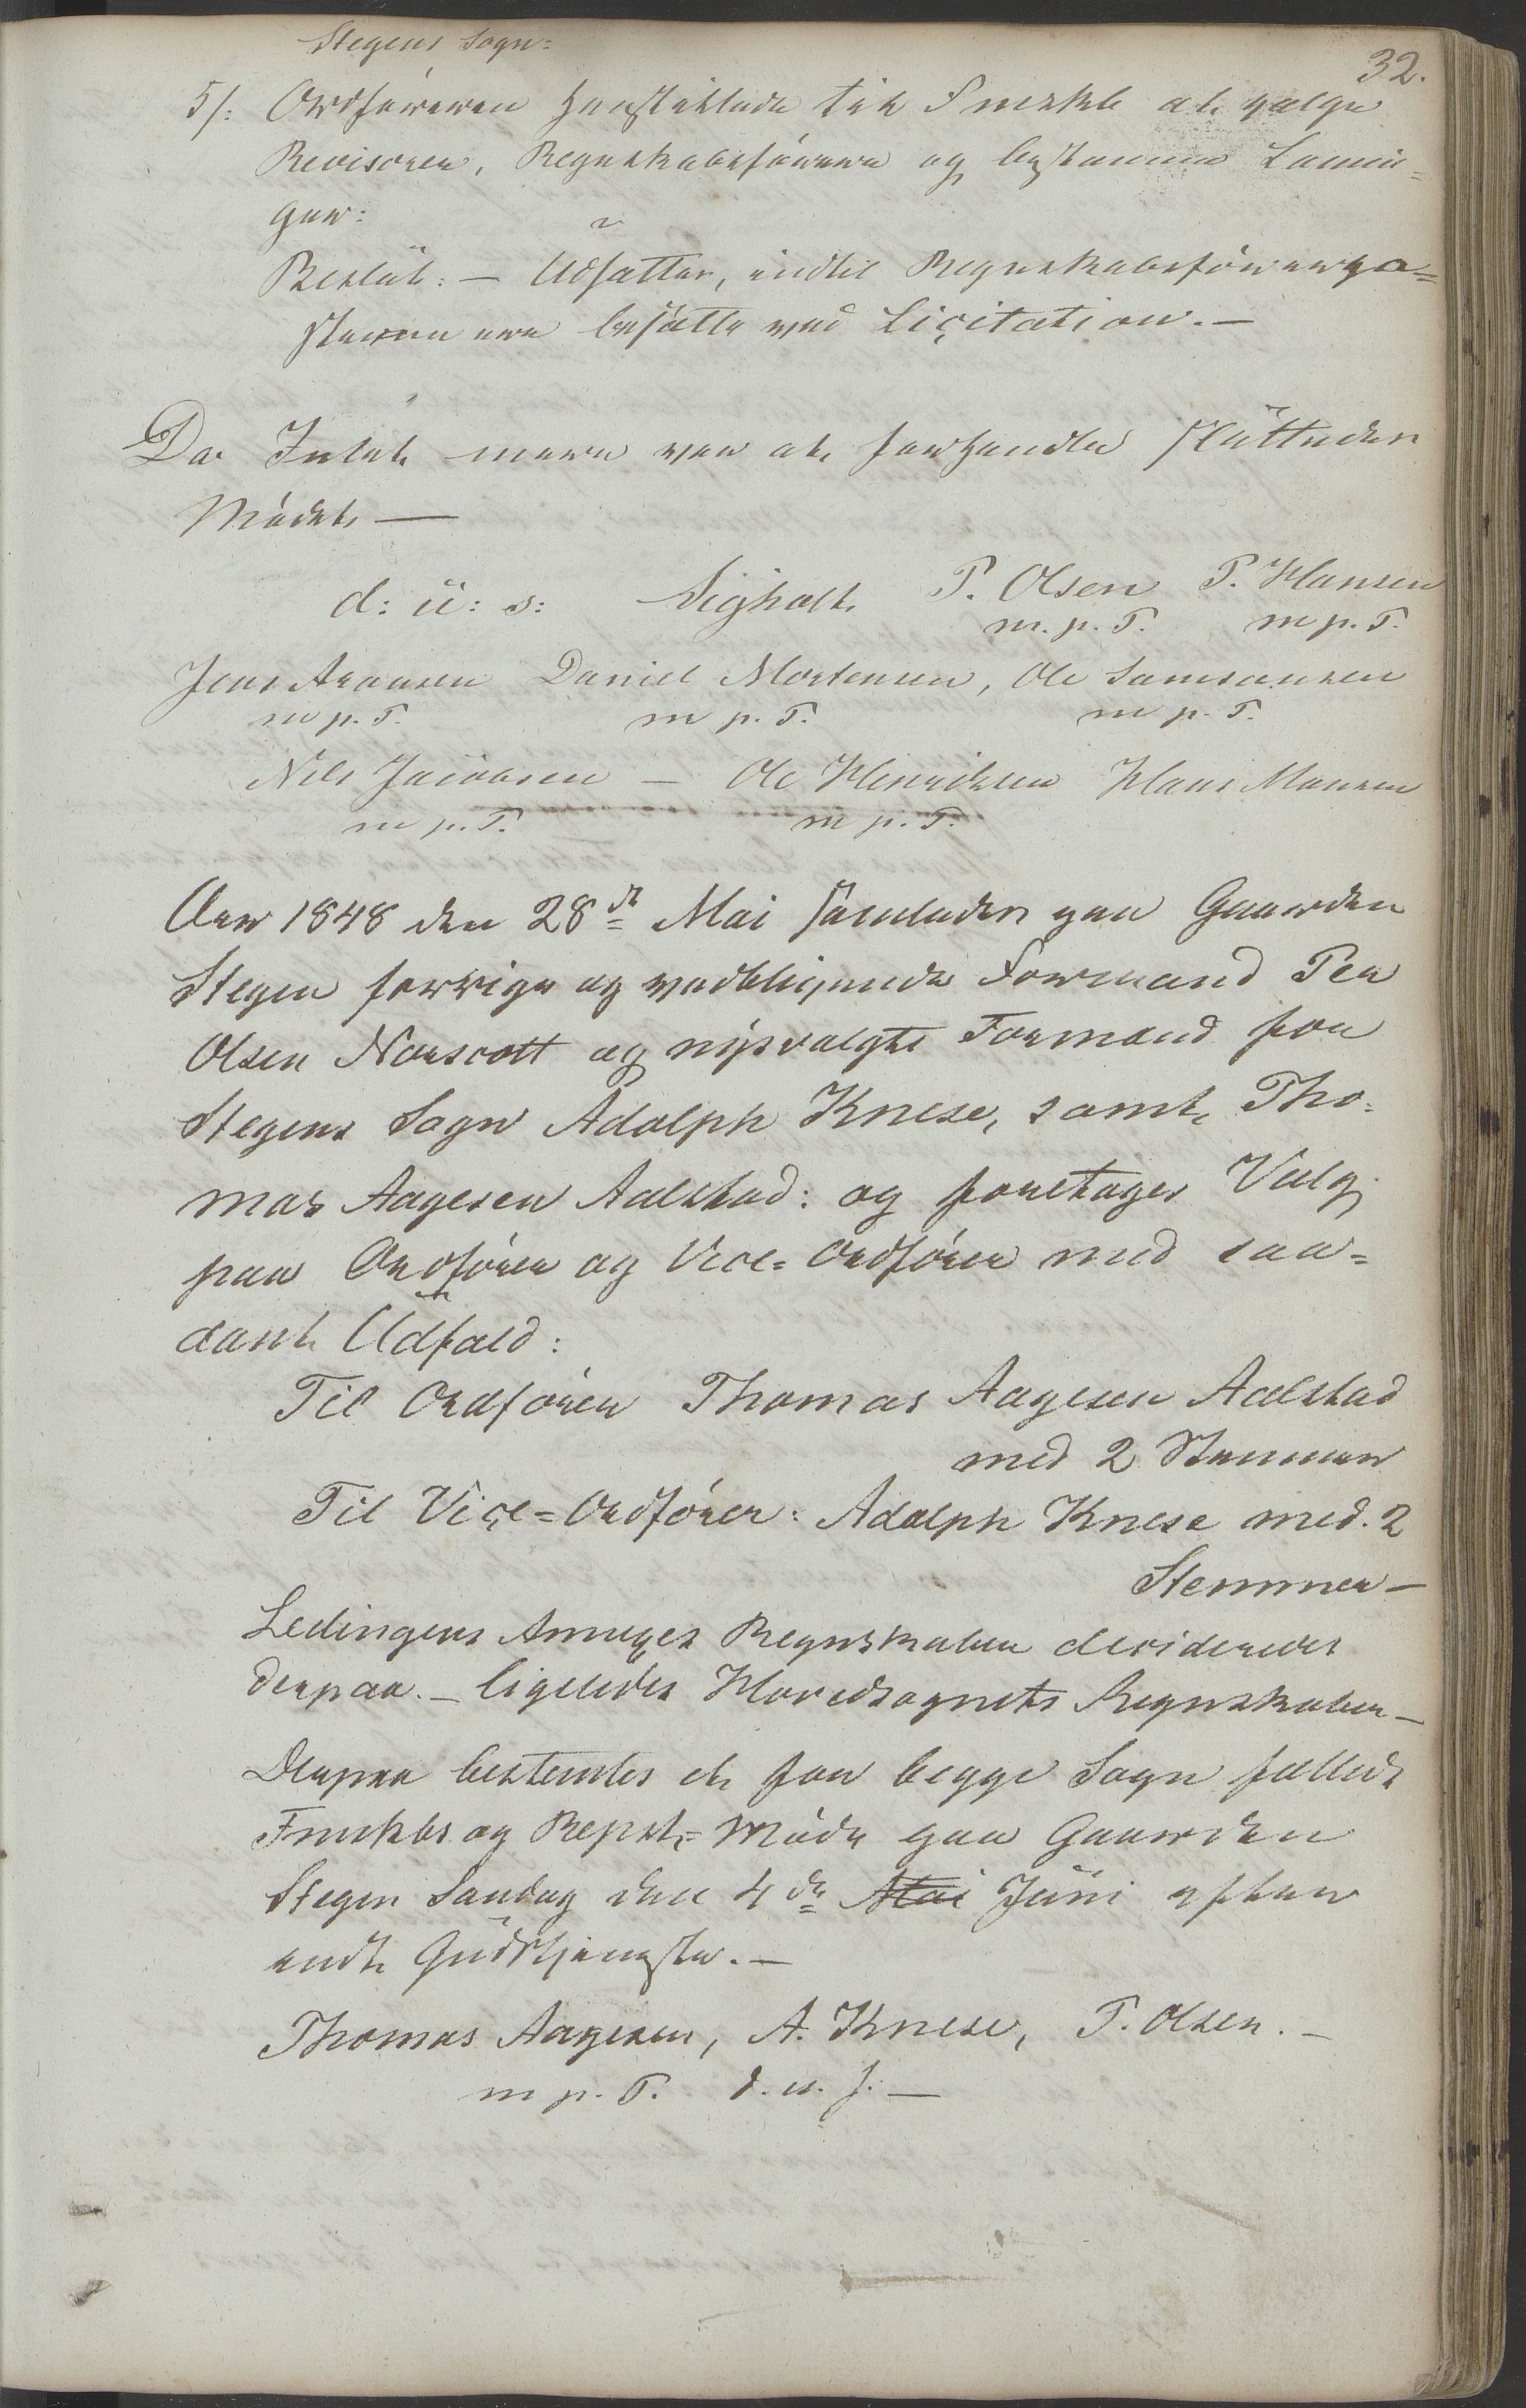 Stegens Sogn:
32.
5/: Ordføreren henstillede til Fmskb. at vælge
Revisorer, Regnskabsførere og bestemme Lønnin=
ger:
Beslut: — Udsattes, indtil Regnskabsførerpo=
sterne ere besatte ved Licitation. —
Da Intet mere var at forhandle sluttedes
Mødet —
d: u: s: Sigholt P. Olsen P. Hansen
m. p. P. m p. P.
Jens Aronsen Daniel Mortensen, Ole Samsonsen
m p. P. m p. P. m p. P.
Nils Jacobsen — Ole Henriksen Hans Monsen
m p. P. m p. P.
Aar 1848 den 28de Mai samledes paa Gaarden
Stegen forrige og vedblivende Formand Per
Olsen Norscott og nysvalgte Formænd for
Stegens Sogn Adolph Knese, samt Tho=
mas Aagesen Aalstad: og foretoges Valg
paa Ordfører og Vice=Ordfører med saa=
dant Udfald:
Til Ordfører Thomas Aagesen Aalstad
med 2 Stemmer
Til Vice=Ordfører: Adolph Knese med 2
Stemmer —
Ledingens Annexes Regnskaber decideredes
derpaa. — ligeledes Hovedsognets Regnskaber —
Derpaa bestemtes et for begge Sogn fælleds
Fmskbs og Repst,= Møde paa Gaarden
Stegen Søndag den 4de Mai Juni efter
endt Gudstjeneste. —
Thomas Aagesen, A. Knese, P. Olsen. —
m p. P. d. u. s. —